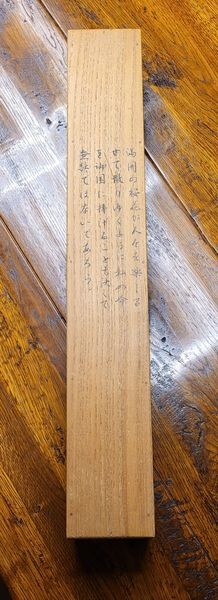 満開の桜花が人々を楽しま
せて散りゆくように私の命
を御国に捧げることも決して
無駄では無いであろう。